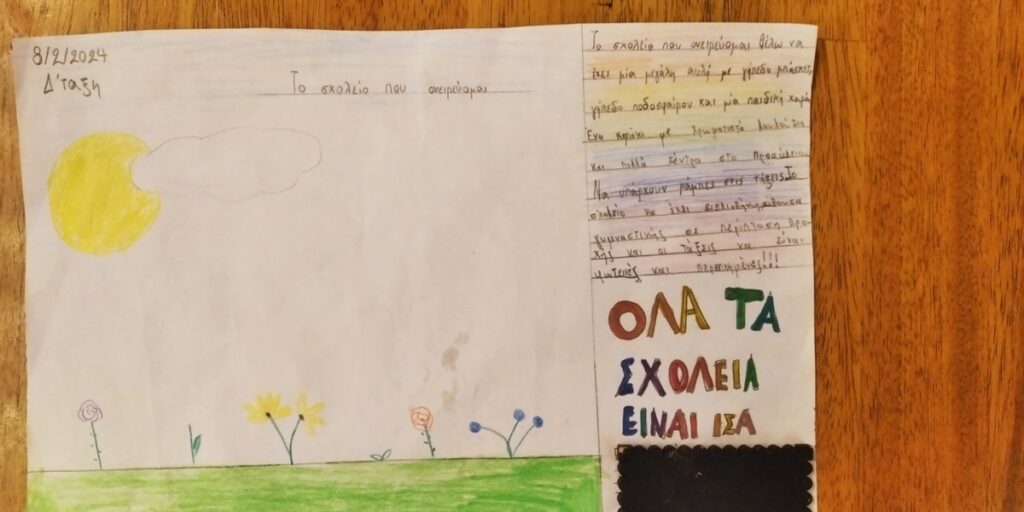 8/2/2024
Δ'ταξη
Το σχολείο που ονειρεύομαι
Το σχολείο που ονειρεύομαι θέλω να
έχει μία μεγάλη αυλή με γήπεδο μπάσκετ,
γήπεδο ποδοσφαίρου και μία παιδική χαρά
Ένα κηπάκι με χρωματιστά λουλούδια
και πολλά δέντρα στο προαύλειο.
Να υπάρχουν ράμπες στις τάξεις. Το
σχολείο να έχει βιβλιοθήκη, αίθουσα
γυμναστικής σε περίπτωση βρο-
χής και οι τάξεις να είναι
φωτεινές και περιποιημένες!!!
ΟΛΑ ΤΑ
ΣΧΟΛΕΙΑ
ΕΙΝΑΙ ΙΣΑ